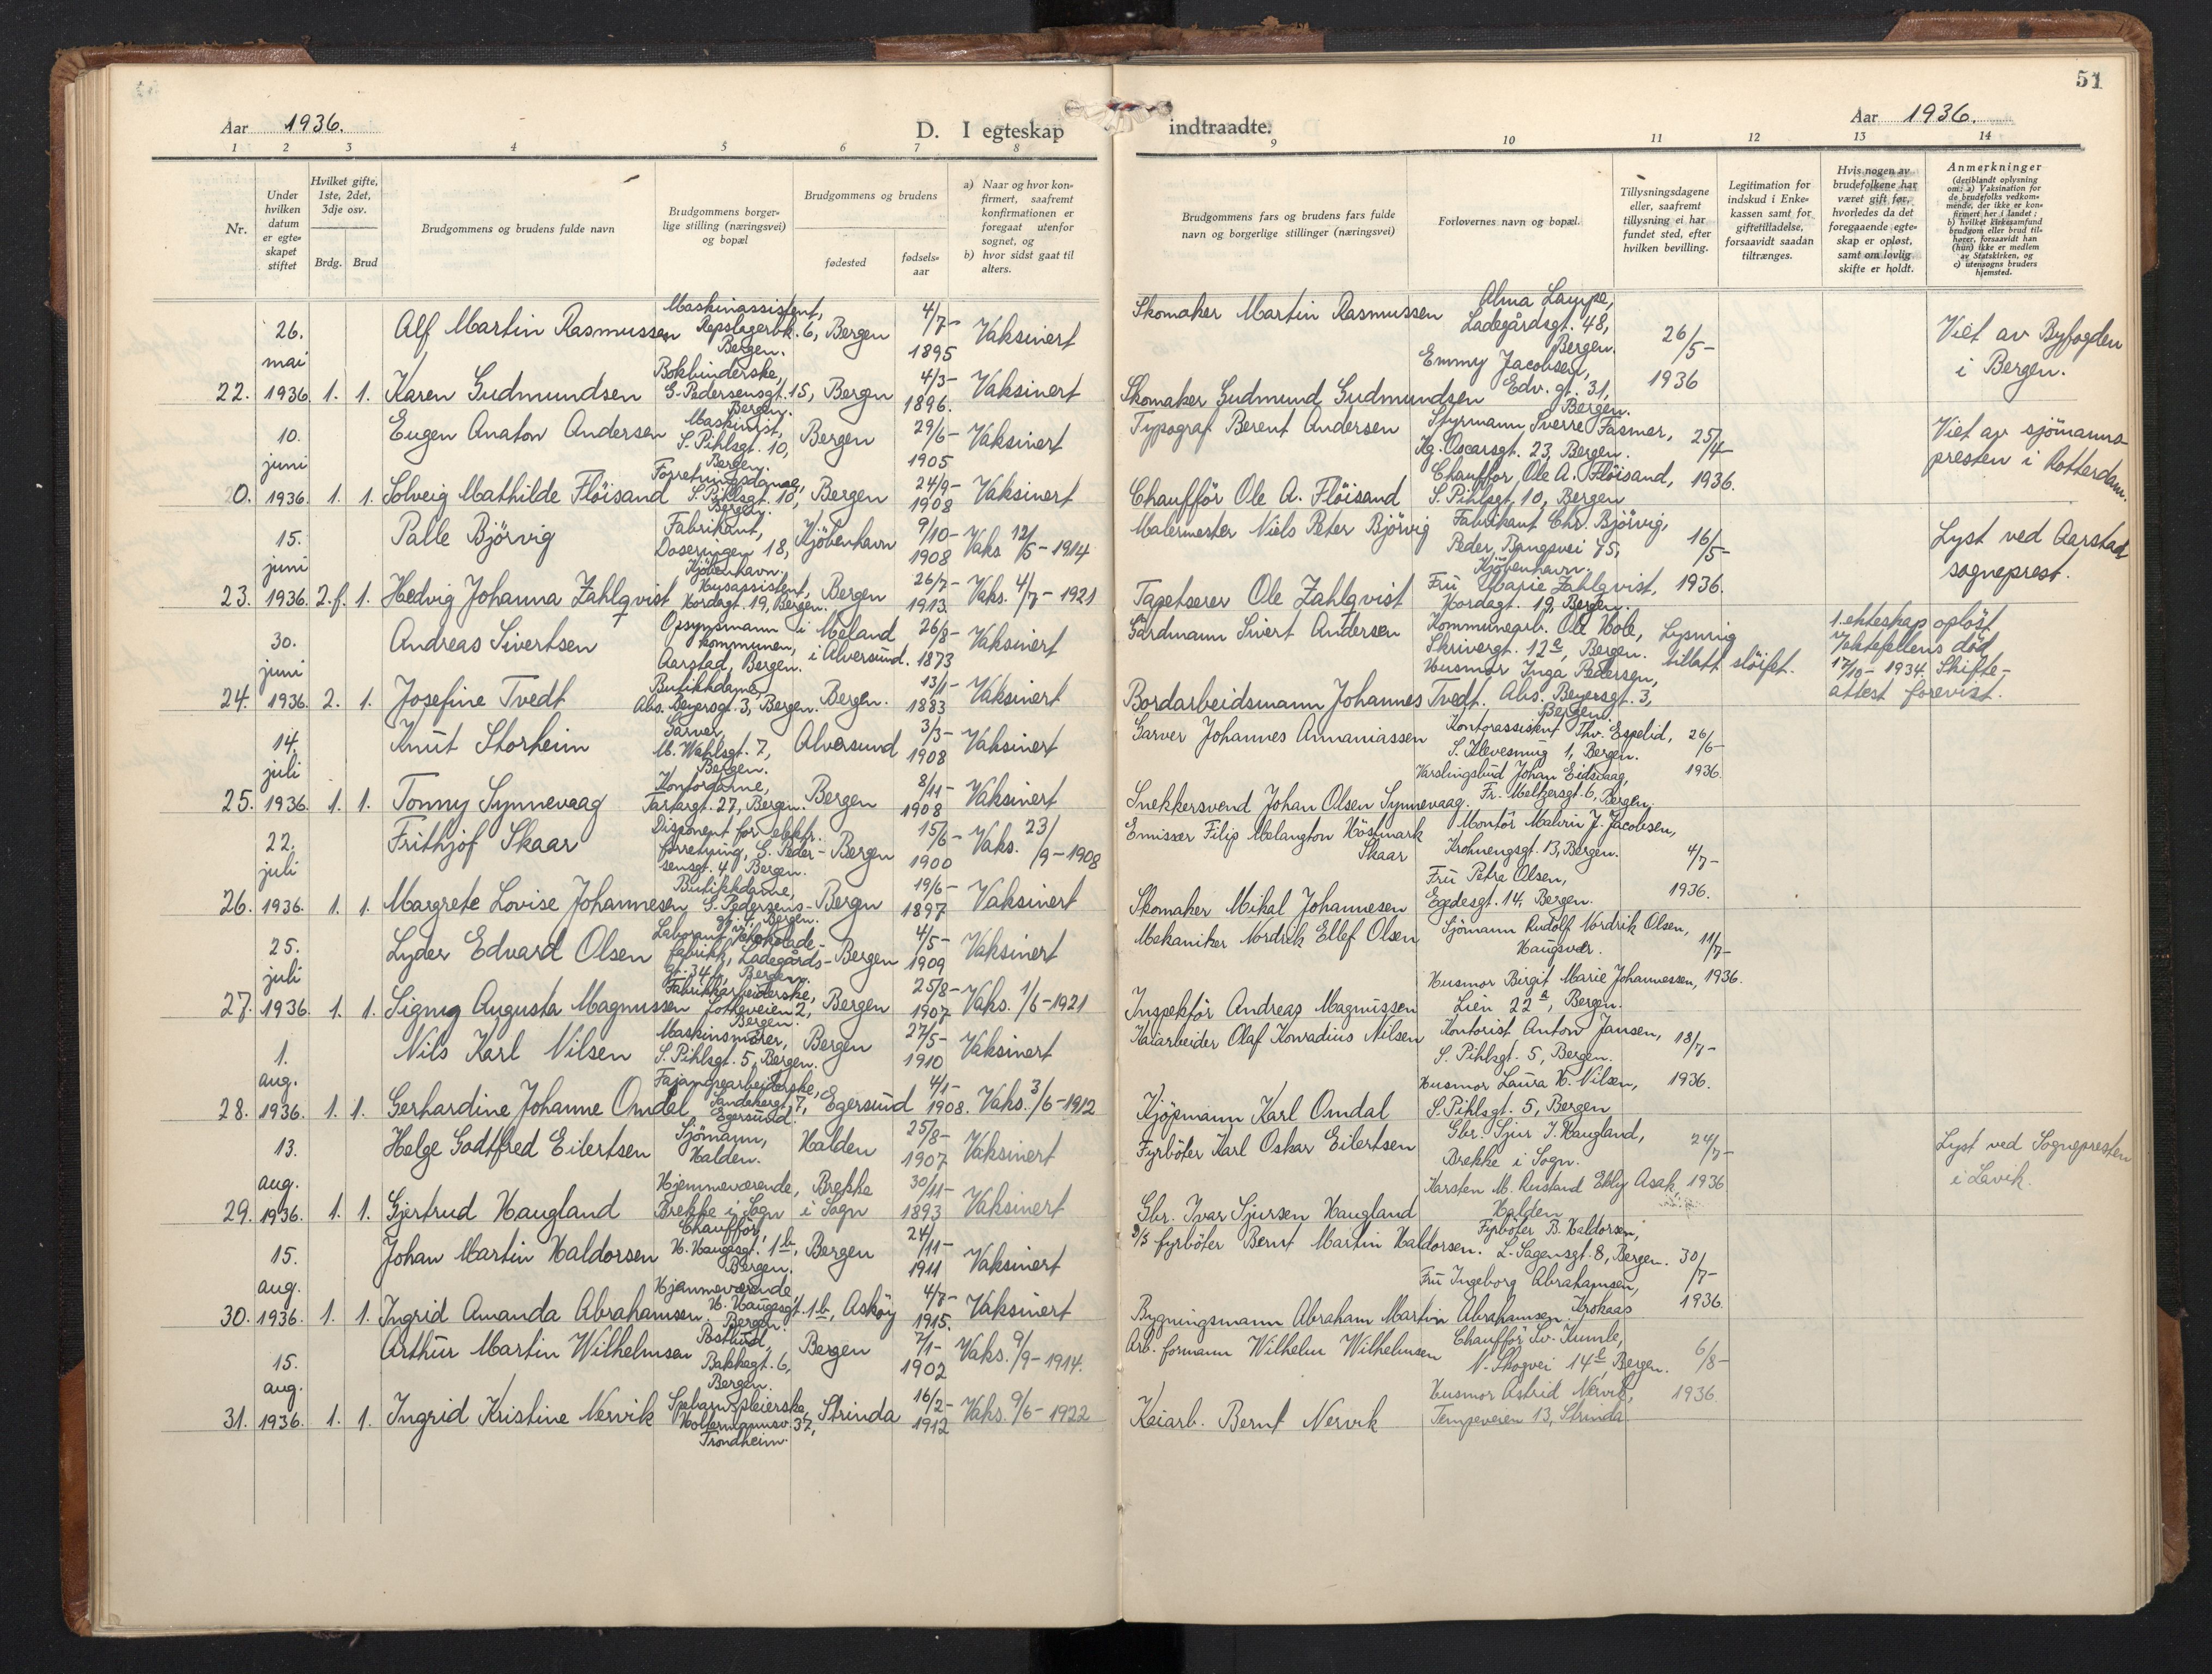 51
Aar 1936.
D. I egteskap
indtraadte.
Aar 1936.
1 2 3 4 5 6 7 8
9 10 11 12 13 14
Nr.
Under hvilken datum er egteskapet stiftet
Hvilket gifte, 1ste, 2det, 3dje osv.
Brdg. Brud
Brudgommens og brudens fulde navn
Brudgommens borgerlige stilling (næringsvei) og bopæl
Brudgommens og brudens
fødested
fødselsaar
a) Naar og hvor konfirmert, saafremt konfirmationen er foregaat utenfor sognet, og
b) hvor sidst gaat til alters.
Brudgommens fars og brudens fars fulde navn og borgerlige stillinger (næringsvei)
Forlovernes navn og bopæl.
Tillysningsdagene eller, saafremt tillysning ei har fundet sted, efter hvilken bevilling.
Legitimation for indskud i Enkekassen samt for giftetilladelse, forsaavidt saadan tiltrænges.
Hvis nogen av brudefolkene har været gift før, hvorledes da det foregaaende egteskap er opløst, samt om lovlig skifte er holdt.
Anmerkninger
(deriblandt oplysning om: a) Vaksination for de brudefolks vedkommende, der ikke er konfirmert her i landet; b) hvilket kirkesamfund brudgom eller brud tilhører, forsaavidt han (hun) ikke er medlem av Statskirken, og c) utensogns bruders hjemsted.
22. 26. mai 1936. 1. 1.
Alf Martin Rasmussen Maskinassistent, Repslagerbk. 6, Bergen. Bergen 4/7-1895 Vaksinert
Skomaker Martin Rasmussen Alma Lampe, Ladegårdsgt. 48, Bergen. 26/5-1936
Viet av Byfogden i Bergen.
Karen Gudmundsen Bokbinderske, G. Pedersensgt. 15, Bergen. Bergen 4/3-1896. Vaksinert
Skomaker Gudmund Gudmundsen Emmy Jacobsen, Edv. gt. 31, Bergen.
0. 10. juni 1936. 1. 1.
Eugen Anaton Andersen Maskinist, S. Pihlsgt. 10, Bergen. Bergen 29/6-1905 Vaksinert
Typograf Berent Andersen Styrmann Sverre Fasmer, Kg. Oscarsgt. 23, Bergen. 25/4-1936.
Viet av sjömannspresten i Rotterdam.
Solveig Mathilde Flöisand Forretningsdame, S. Pihlsgt. 10, Bergen. Bergen 24/9-1908 Vaksinert
Chaufför Ole A. Flöisand Chaufför Ole A. Flöisand, S. Pihlsgt. 10, Bergen
23. 15. juni 1936. 2.f. 1.
Palle Björvig Fabrikant, Doseringen 18, Kjöbenhavn. Kjöbenhavn 9/10-1908 Vaks 12/5-1914
Malermester Niels Peter Björvig Fabrikant Chr. Björvig, Peder Bangsvei 45, Kjöbenhavn. 16/5-1936.
Lyst ved Aarstad sogneprest.
Hedvig Johanna Zahlqvist Husassistent, Hordagt. 19, Bergen. Bergen 26/7-1913 Vaks. 4/7-1921
Tapetserer Ole Zahlqvist Frü Marie Zahlqvist, Hordagt. 19, Bergen.
24. 30. juni 1936. 2. 1.
Andreas Sivertsen Opsynsmann i kommunen, Aarstad, Bergen. Meland i Alversund. 26/8-1873 Vaksinert
Gårdmann Sivert Andersen Kommunearb. Ole Hole, Skrivergt. 12a, Bergen. Lysning tillatt slöifet.
1. ekteskap oplöst v/ektefellens död 17/10-1934. Skifteattest forevist.
Josefine Tvedt Butikkdame, Abs. Beyersgt. 3, Bergen. Bergen. 13/11-1883 Vaksinert
Bordarbeidsmann Johannes Tvedt. Husmor Inga Pedersen, Abs. Beyersgt. 3, Bergen.
25. 14. juli 1936. 1. 1.
Knüt Storheim Garver, M. Wahlsgt. 7, Bergen. Alversund 3/3-1908 Vaksinert
Garver Johannes Annaniassen Kontorassistent Thv. Espelid, S. Klevesmug 1, Bergen. 26/6-1936.
Tonny Synnevaag Kontordame, Tartargt. 27, Bergen. Bergen 8/11-1908 Vaksinert
Snekkersvend Johan Olsen Synnevaag. Varslingsbud Johan Eidsvaag, Fr. Meltzersgt. 6, Bergen.
26. 22. juli 1936. 1. 1.
Frithjof Skaar Disponent for elektr. forretning, G. Pedersensgt. 4 Bergen. Bergen 15/6-1900 Vaks. 23/9-1908
Emissær Filip Melangton Höstmark Skaar Montör Malvin J. Jacobsen, Krohnengsgt. 13, Bergen. 4/7-1936.
Margrete Lovise Johannesen Butikkdame, G. Pedersensgt. 4, Bergen. Bergen 19/6-1897 Vaksinert
Skomaker Mikal Johannesen Frü Petra Olsen, Egedesgt. 14, Bergen.
27. 25. juli 1936. 1. 1.
Lyder Edvard Olsen Laborant v. chokoladefabrikk, Ladegårdsgt. 34b, Bergen. Bergen 4/5-1909 Vaksinert
Mekaniker Nordrik Ellef Olsen Sjömann Rudolf Nordrik Olsen, Haugsvær. 11/7-1936.
Signy Augusta Magnussen Fabrikkarbeiderske, Jotteveien 2, Bergen. Bergen 25/8-1907 Vaks. 1/6-1921
Inspektör Andreas Magnüssen Husmor Birgit Marie Johannessen, Lien 22a, Bergen.
28. 1. aug. 1936. 1. 1.
Nils Karl Nilsen Maskinsmörer, S. Pihlsgt. 5, Bergen. Bergen 27/5-1910 Vaksinert
Kaiarbeider Olaf Konradius Nilsen Kontorist Anton Jansen, S. Pihlsgt. 5, Bergen. 18/7-1936.
Gerhardine Johanne Omdal Fajansearbeiderske, Sandebergt. 7, Egersund. Egersund 4/1-1908. Vaks. 3/6-1912
Kjöpmann Karl Omdal Husmor Laura K. Nilsen, S. Pihlsgt. 5, Bergen
29. 13. aug. 1936. 1. 1.
Helge Godtfred Eilertsen Sjömann, Halden. Halden 25/8-1907 Vaksinert
Fyrböter Karl Oskar Eilertsen Gbr. Sjur I. Haugland, Brekke i Sogn. 24/7-1936
Lyst ved Sognepresten i Lavik.
Gjertrud Haugland Hjemmeværende, Brekke i Sogn Brekke i Sogn 30/11-1893 Vaksinert
Gbr. Ivar Sjursen Haugland Karsten M. Rustand Ebly Asak, Halden
30. 15. aug. 1936. 1. 1.
Johan Martin Haldorsen Chaufför, H. Haugesgt. 1b, Bergen. Bergen 24/11-1911 Vaksinert
D/S fyrböter Bernt Martin Haldorsen. Fyrböter B. Haldorsen, L. Sagensgt. 8, Bergen. 30/7-1936.
Ingrid Amanda Abrahamsen. Hjemmeværende, H. Haugesgt. 1b, Bergen. Asköy 4/8-1915. Vaksinert
Bygningsmann Abraham Martin Abrahamsen. Frü Ingeborg Abrahamsen, Krokaas
31. 15. aug. 1936. 1. 1.
Arthür Martin Wilhelmsen Postbud, Bakkegt. 6, Bergen. Bergen 7/1-1902 Vaks. 9/9-1914.
Arb. formann Wilhelm Wilhelmsen Chaufför Sv. Kumle, N. Skogvei 14b, Bergen. 6/8-1936
Ingrid Kristine Nervik Spebarnspleierske, Holtermannsv. 37, Trondheim. Strinda 16/2-1912 Vaks. 9/6-1922
Kaiarb. Bernt Nervik Husmor Astrid Nervik, Tempeveien 13, Strinda